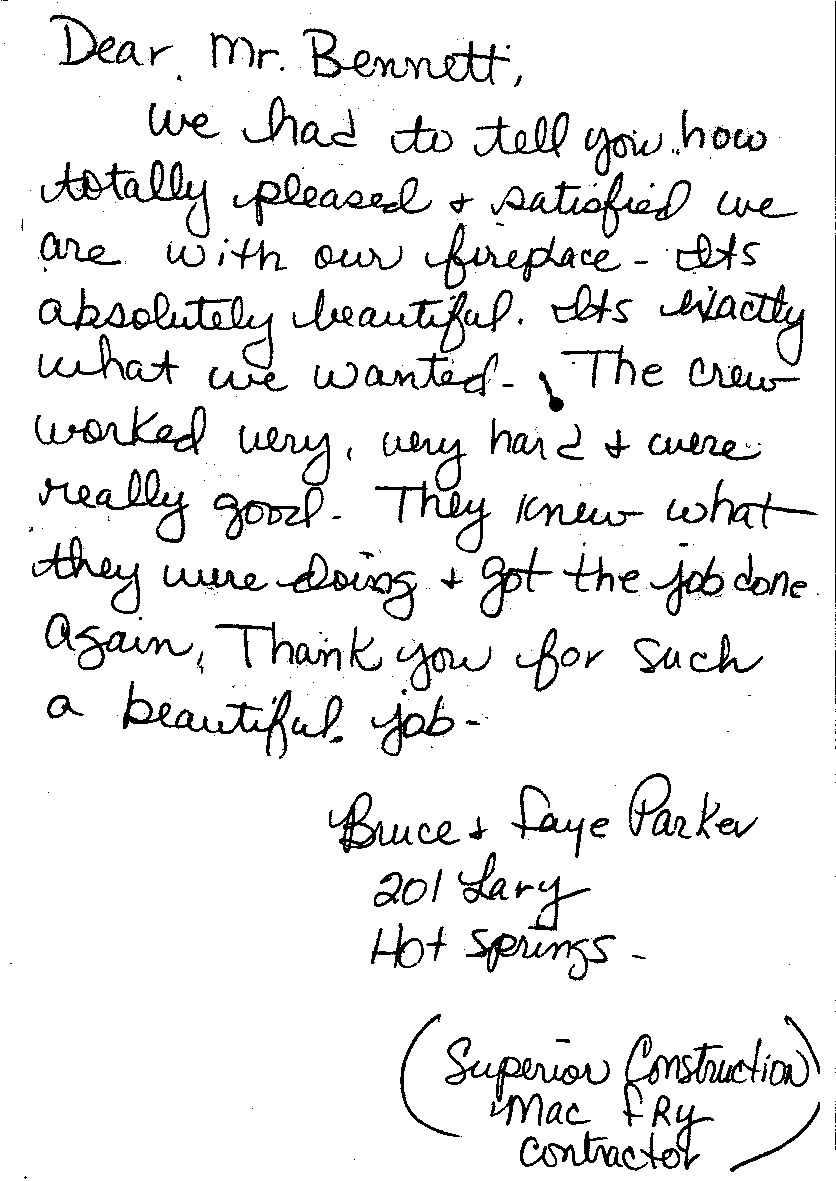 Dear Mr. Bennett,
We had to tell you how
totally pleased + satisfied we
are with our fireplace - Its
absolutely beautiful. Its exactly
what we wanted - The crew
worked very, very hard + were
really good - They knew what
they were doing + got the job done
Again, Thank you for such
a beautiful job -
Bruce + Faye Parker
201 Lary
Hot Springs -
(Superior Construction)
Mac FRy
contractor